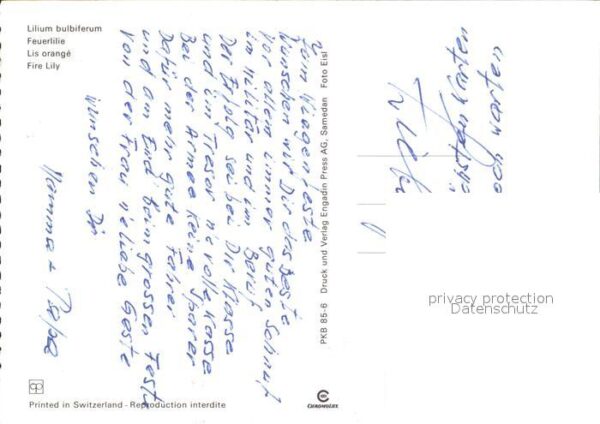 Lilium bulbiferum
Feuerlilie
Lis orangé
Fire Lily
Zum Wiegenfeste
Wünschen wir Dir das Beste
Vor allem immer guten Schnauf
im Militär und im Beruf
Der Erfolg sei bei Dir Klasse
und im Tresor ne volle Kasse
Bei der Armee keine Sparer
Dafür mehr gute Fahrer
und am End beim grossen Fest
von der Frau ne liebe Geste
Wünschen Dir
Mamma + Papa
PKB 85-6 Druck und Verlag Engadin Press AG, Samedan Foto Eisl
Karten
warten
privacy protection
Datenschutz
cp
Printed in Switzerland - Reproduction interdite
CHROMOLUX